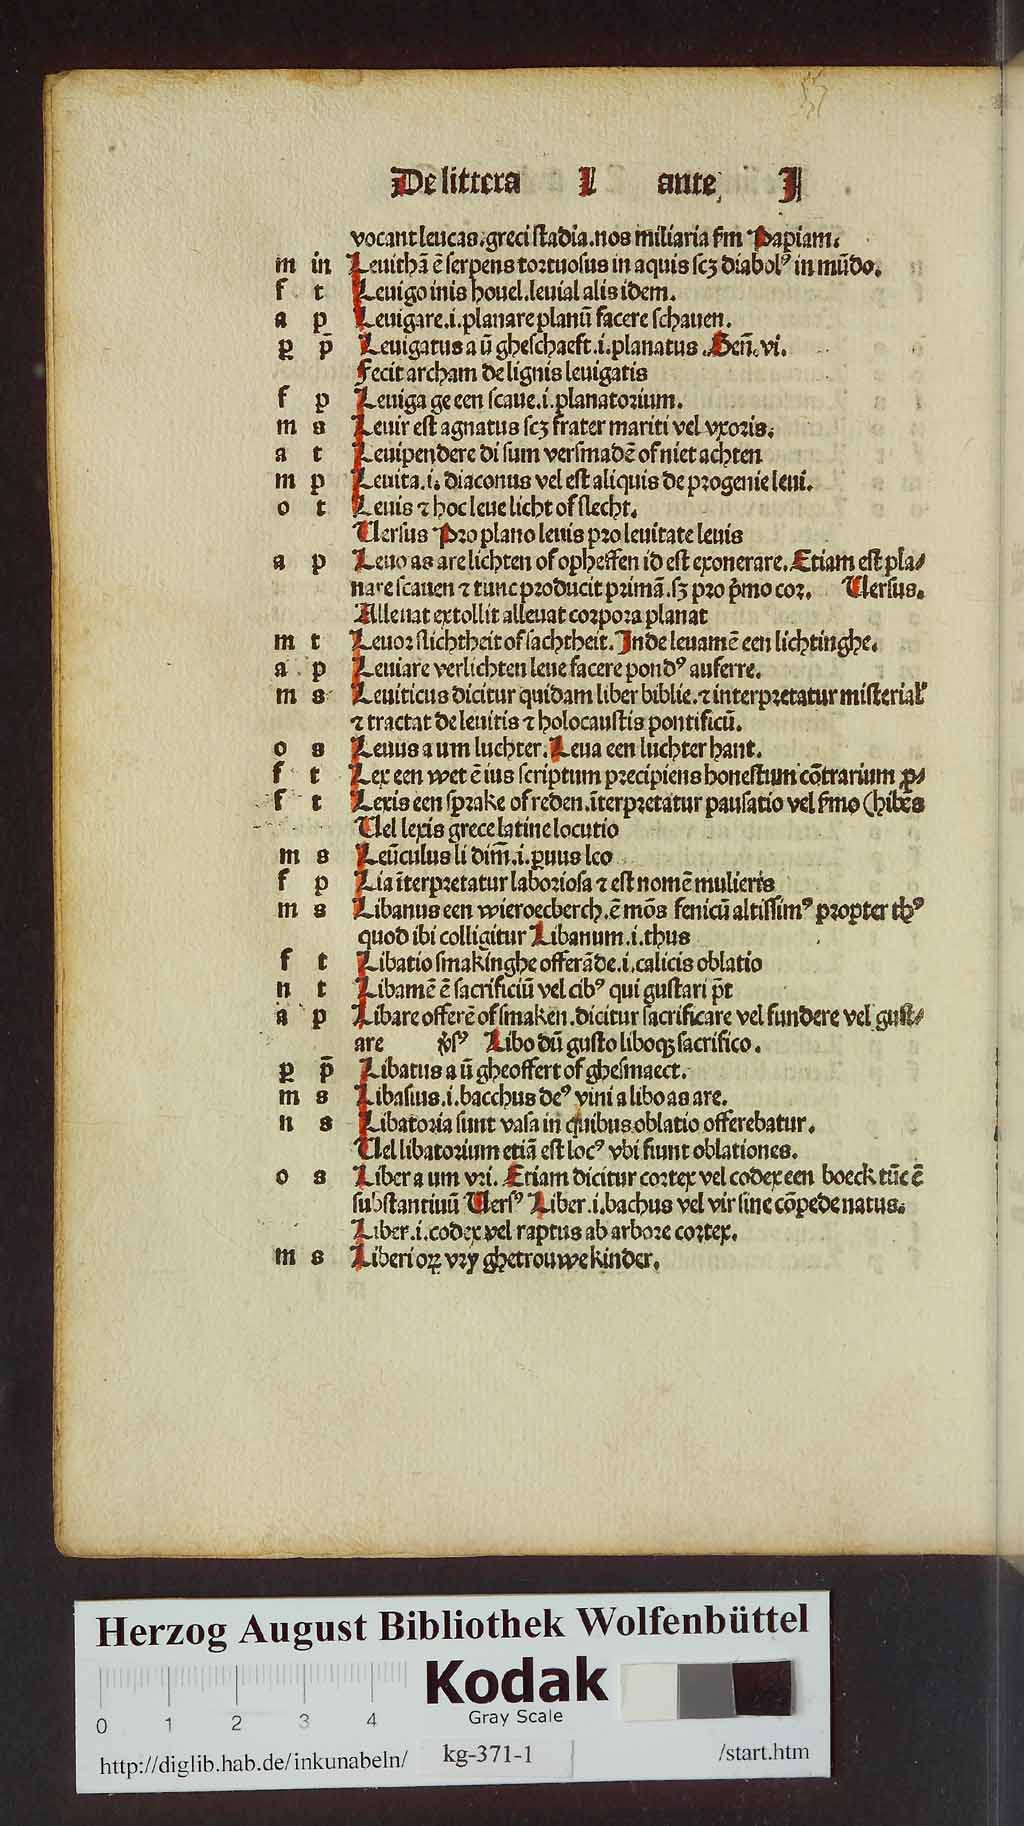 De littera L ante I
vocant leucas. greci stadia. nos miliaria fm Papiam.
m in Leuithā ē serpens tortuosus in aquis scȝ diabolꝰ in mūdo.
f t Leuigo inis houel. leuial alis idem.
a p Leuigare .i. planare planū facere schauen.
ꝑ p̄ Leuigatus a ū gheschaeft .i. planatus. Gen̄. vi.
Fecit archam de lignis leuigatis
f p Leuiga ge een scaue .i. planatorium.
m s Leuir est agnatus scȝ frater mariti vel vxoris.
a t Leuipendere di sum versmadē of niet achten
m p Leuita .i. diaconus vel est aliquis de progenie leui.
o t Leuis ⁊ hoc leue licht of slecht.
Uersus Pro plano leuis pro leuitate leuis
a p Leuo as are lichten of opheffen id est exonerare. Etiam est pla⸗
nare scauen ⁊ tunc producit primā. sȝ pro p̄mo cor. Uersus.
Alleuat extollit alleuat corpora planat
m t Leuor slichtheit of sachtheit. Inde leuamē een lichtinghe.
a p Leuiare verlichten leue facere pondꝰ auferre.
m s Leuiticus dicitur quidam liber biblie. ⁊ interpretatur misterial'
⁊ tractat de leuitis ⁊ holocaustis pontificū.
o s Leuus a um luchter. Leua een luchter hant.
f t Lex een wet ē ius scriptum precipiens honestum cōtrarium ꝓ⸗
f t Lexis een sprake of reden. īterpretatur pausatio vel fmo (hibēs
Uel lexis grece latine locutio
m s Leūculus li dim̄ .i. ꝑuus leo
f p Lia īterpretatur laboriosa ⁊ est nomē mulieris
m s Libanus een wieroecberch. ē mōs fenicū altissimꝰ propter thꝰ
quod ibi colligitur Libanum .i. thus
f t Libatio smakinghe offerāde .i. calicis oblatio
n t Libamē ē sacrificiū vel cibꝰ qui gustari p̄t
a p Libare offerē of smaken. dicitur sacrificare vel fundere vel gust⸗
are v̄sꝰ Libo dū gusto liboqȝ sacrifico.
ꝑ p̄ Libatus a ū gheoffert of ghesmaect.
m s Libasius .i. bacchus deꝰ vini a libo as are.
n s Libatoria sunt vasa in quibus oblatio offerebatur.
Uel libatorium etiā est locꝰ vbi fiunt oblationes.
o s Liber a um vri. Etiam dicitur cortex vel codex een boeck tūc ē
substantiuū Uersꝰ Liber .i. bachus vel vir sine cōpede natus.
Liber .i. codex vel raptus ab arbore cortex.
m s Liberi orꝝ vry ghetrouwe kinder.
Herzog August Bibliothek Wolfenbüttel
Kodak
Gray Scale
0 1 2 3 4
http://diglib.hab.de/inkunabeln/ kg-371-1 /start.htm